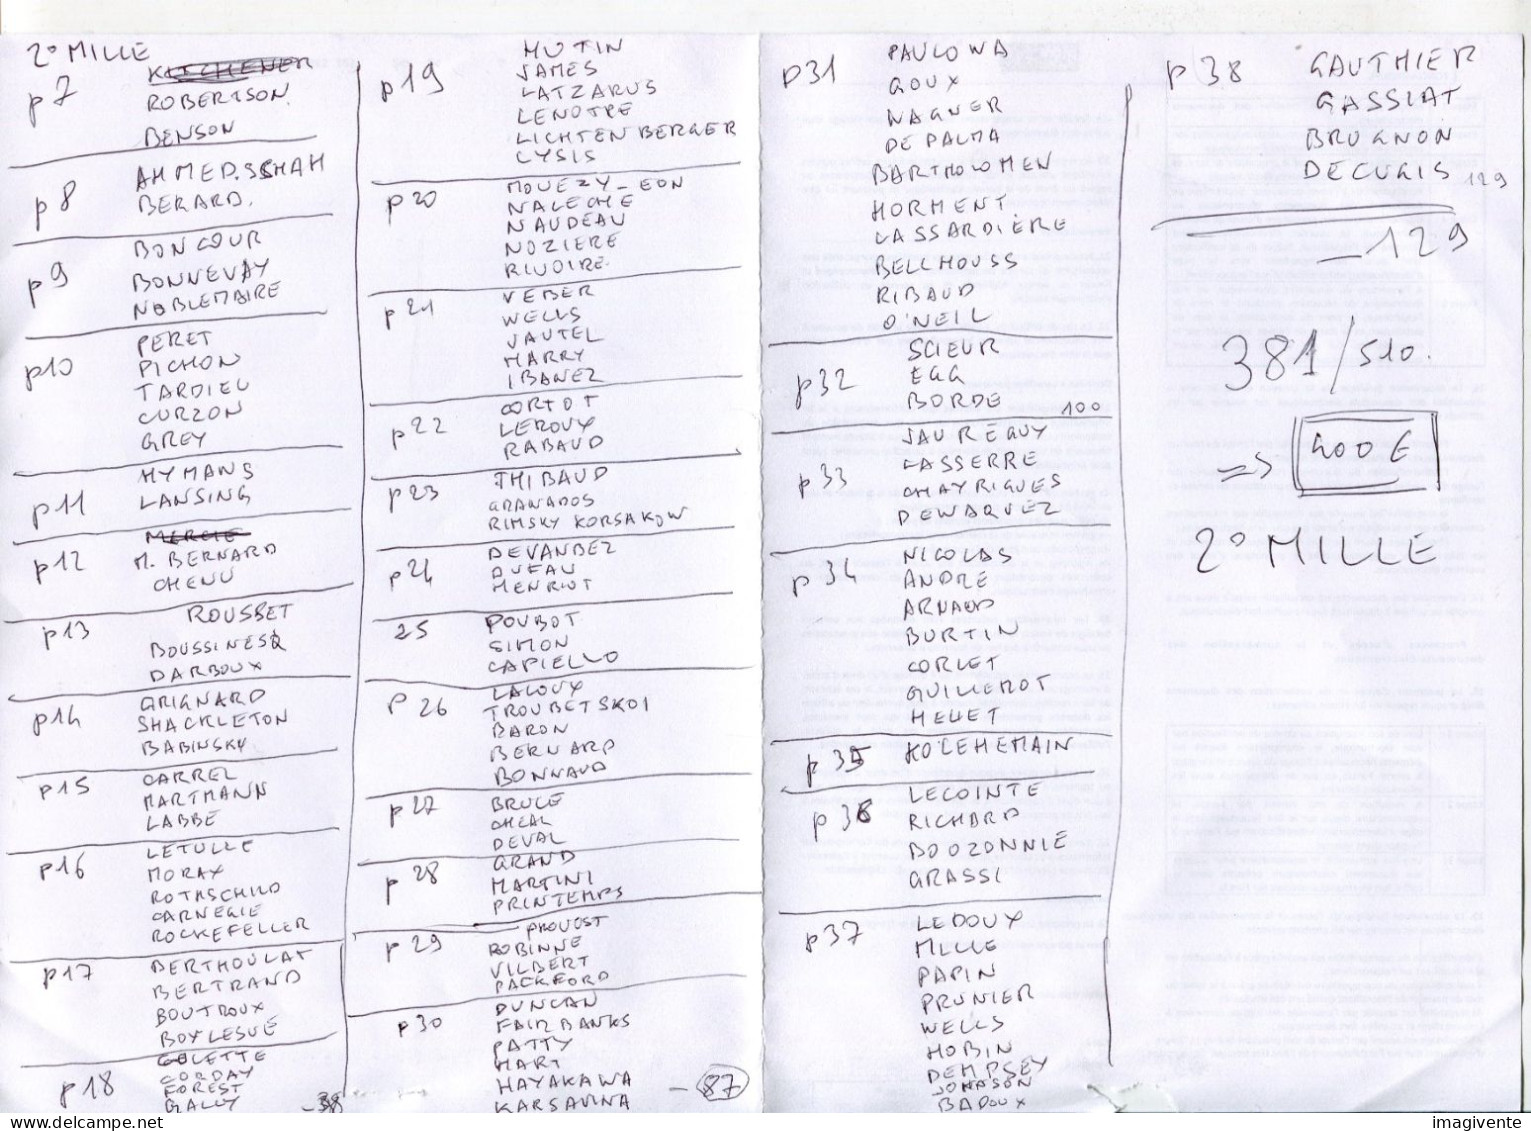 2° MILLE
p7
KITCHENER
ROBERTSON
BENSON
p8
AHMED.SCHAH
BERARD.
p9
BONCOUR
BONNEVAY
NOBLEMAIRE
p10
PERET
PICHON
TARDIEU
CURZON
GREY
p11
HYMANS
LANSING
p12
MERCIE
M. BERNARD
CHENU
p13
ROUSSET
BOUSSINESQ
DARBOUX
p14
GRIGNARD
SHACKLETON
BABINSKY
p15
CARREL
HARTMANN
LABBE
p16
LETULLE
MORAX
ROTHSCHILD
CARNEGIE
ROCKEFELLER
p17
BERTHOULAT
BERTRAND
BOUTROUX
BOYLESVE
p18
COLETTE
CORDAY
FOREST
GALLY
-38
p19
HUTIN
JAMES
LATZARUS
LENOTRE
LICHTENBERGER
LYSIS
p20
MOUEZY-EON
NALECHE
NAUDEAU
NOZIERE
RIVOIRE
p21
VEBER
WELLS
VAUTEL
HARRY
IBANEZ
p22
CORTOT
LEROUX
RABAUD
p23
THIBAUD
GRANADOS
RIMSKY KORSAKOW
p24
DEVANBEZ
DUFAU
HENRIOT
25
POULBOT
SIMON
CAPIELLO
P26
LALOUX
TROUBETSKOI
BARON
BERNARD
BONNAUD
p27
BRULE
CHEAL
DEVAL
p28
GRAND
MARTINI
PRINTEMPS
p29
PROVOST
ROBINNE
VILBERT
PACKFORD
p30
DUNCAN
FAIRBANKS
PATTY
HART
HAYAKAWA
KARSAVINA
-87
p31
PAVLOWA
GOUX
WAGNER
DE PALMA
BARTHOLOMEW
HORMENT
LASSARDIÈRE
BELLHOUSS
RIBAUD
O'NEIL
p32
SCIEUR
EGG
BORDE
100
p33
JAUREGUY
LASSERRE
CHAYRIGUES
DEWARVEZ
p34
NICOLAS
ANDRE
ARNAUD
BURTIN
CORLET
GUILLEROT
HEUET
p35
KOLEHEMAIN
p36
LECOINTE
RICHARD
BOOZONNIE
GRASSI
p37
LEDOUX
MILLE
PAPIN
PRUNIER
WELLS
HOBIN
DEMPSEY
JONHSON
BADOUX
p38
GAUTHIER
GASSIAT
BRUGNON
DECUGIS 129
-129
381/510.
=> 400€
2° MILLE
imagivente